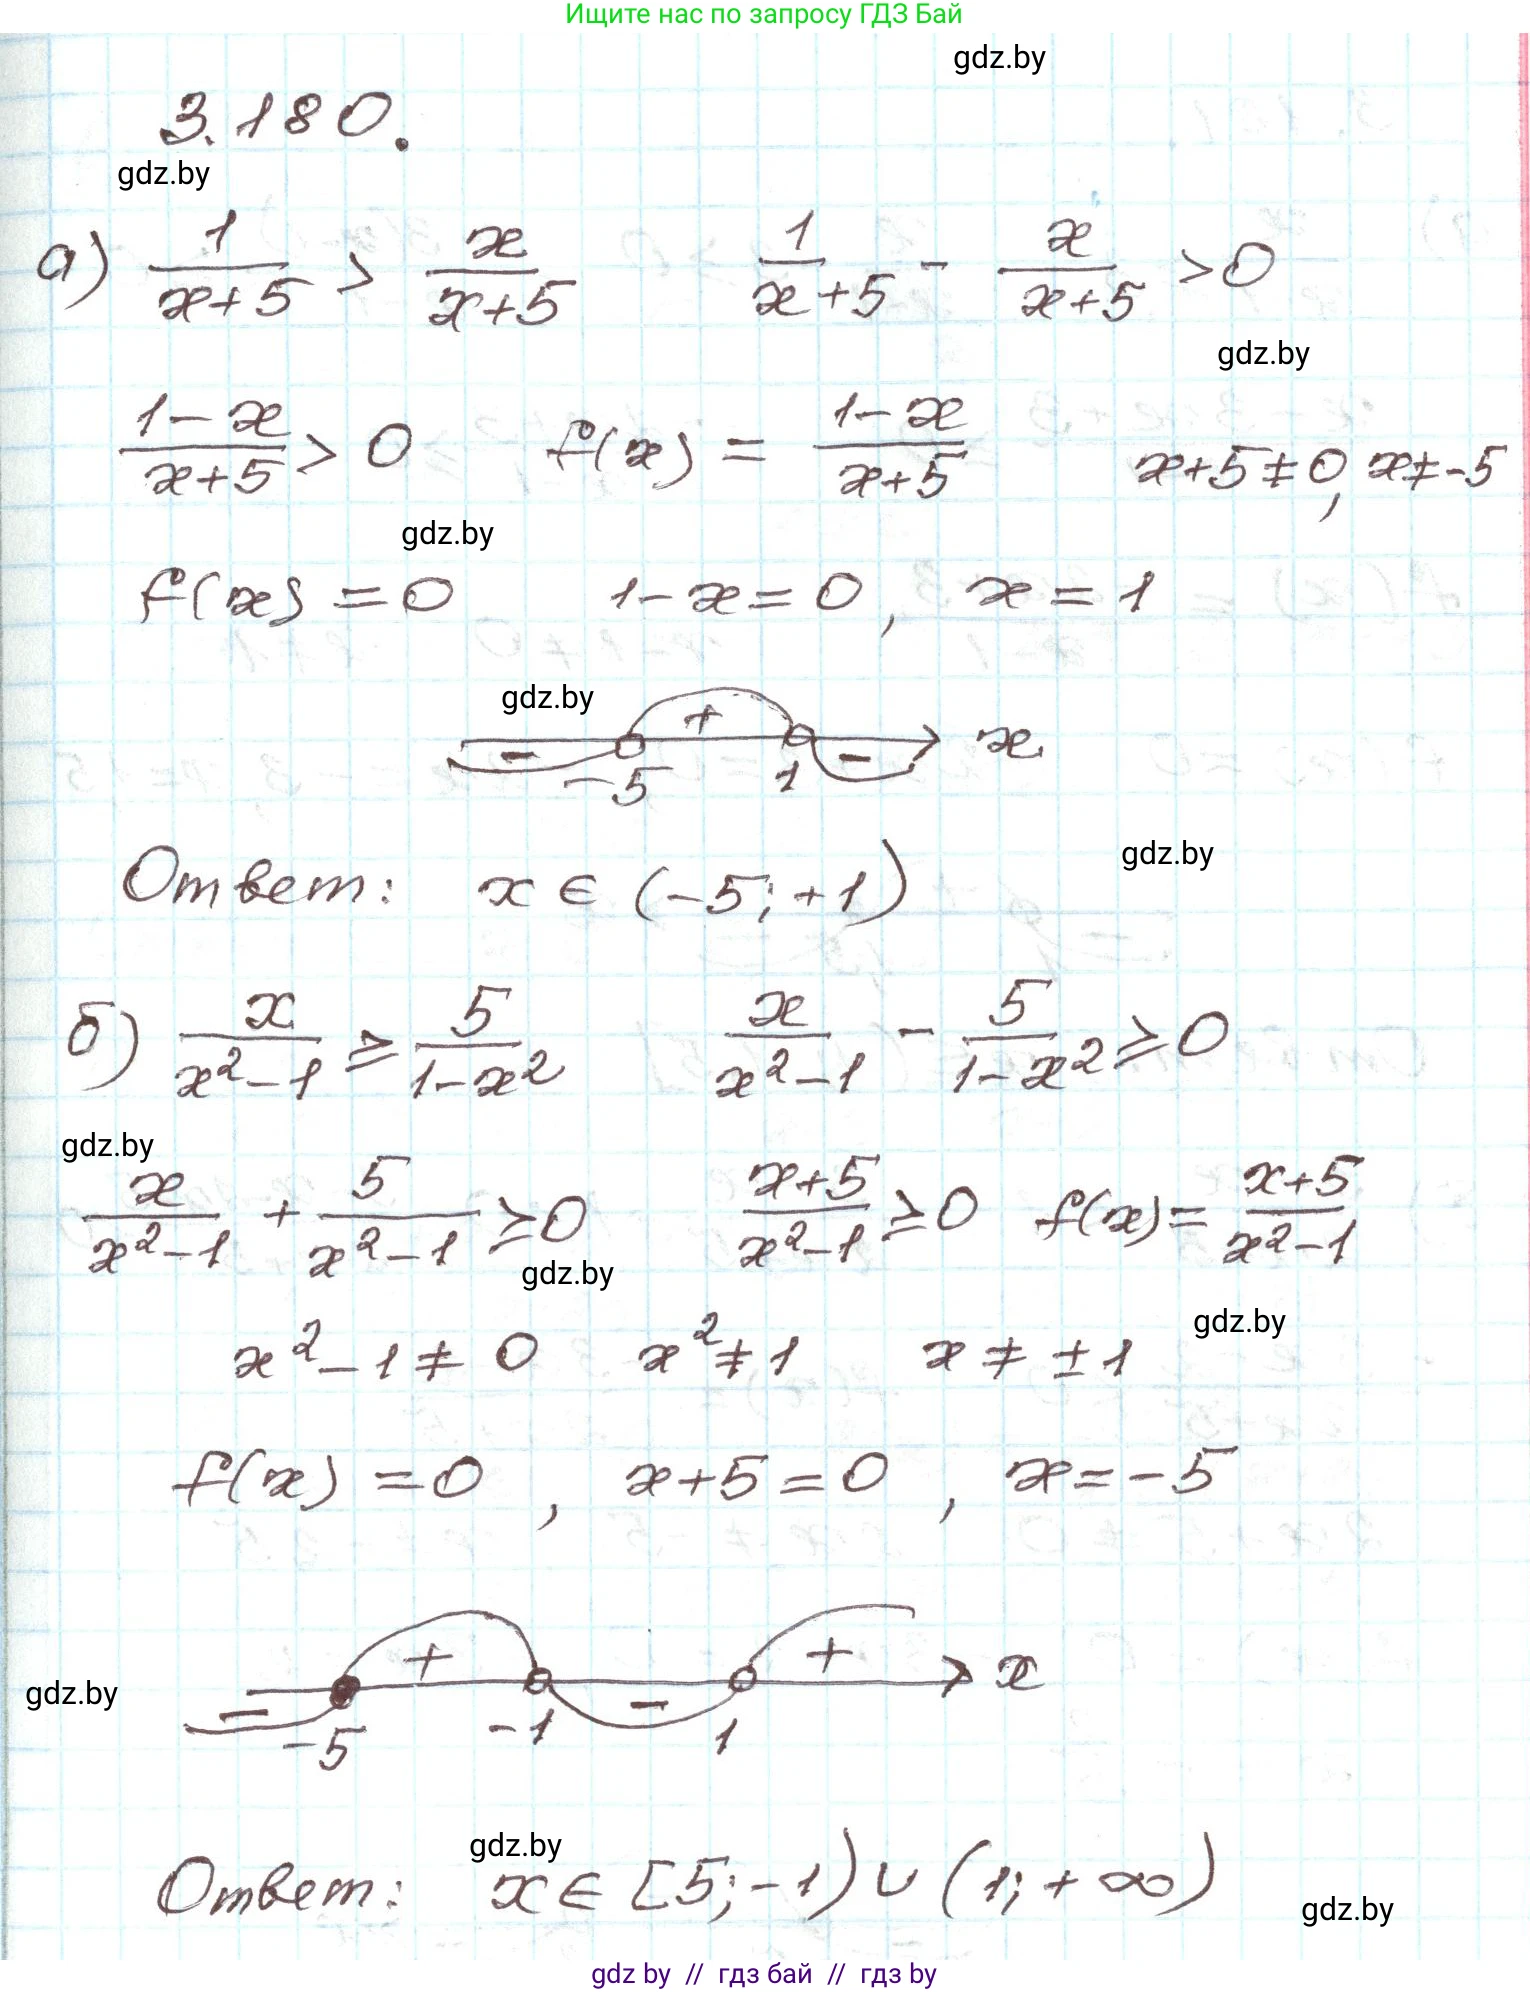 Ищите нас по запросу ГДЗ Бай
gdz.by
3.180.
gdz.by
а) 1/(x+5) > x/(x+5)   1/(x+5) - x/(x+5) >0
gdz.by
(1-x)/(x+5) > 0   f(x) = (1-x)/(x+5)   x+5≠0, x≠-5
gdz.by
f(x) = 0   1-x=0, x=1
gdz.by
- + - x
-5 1
gdz.by
Ответ: x ∈ (-5; +1)
б) x/(x²-1) ≥ 5/(1-x²)   x/(x²-1) - 5/(1-x²) ≥ 0
gdz.by
x/(x²-1) + 5/(x²-1) ≥0   (x+5)/(x²-1) ≥0   f(x)= (x+5)/(x²-1)
gdz.by
gdz.by
x²-1≠0   x²≠1   x≠±1
f(x)=0, x+5=0, x=-5
- + - + x
gdz.by
-5 -1 1
gdz.by
Ответ: x∈[5;-1)∪(1;+∞)
gdz.by
gdz by // гдз бай // гдз by